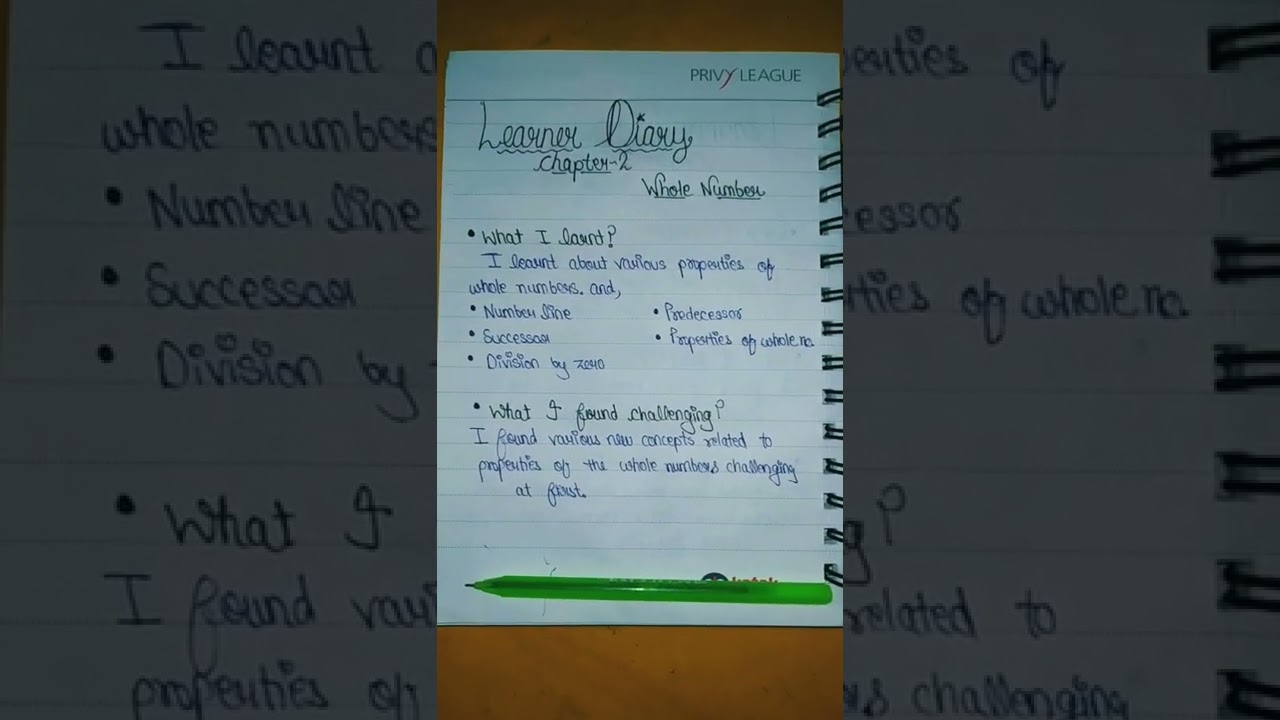 PRIVY LEAGUE
Learner Diary
Chapter-2
Whole Number
• What I larnt?
I learnt about various properties of
whole numbers. and,
• Number line • Predecessor
• Successor • Properties of whole no.
• Division by zero
• What I found challenging?
I found various new concepts related to
properties of the whole numbers challenging
at first.
kotak